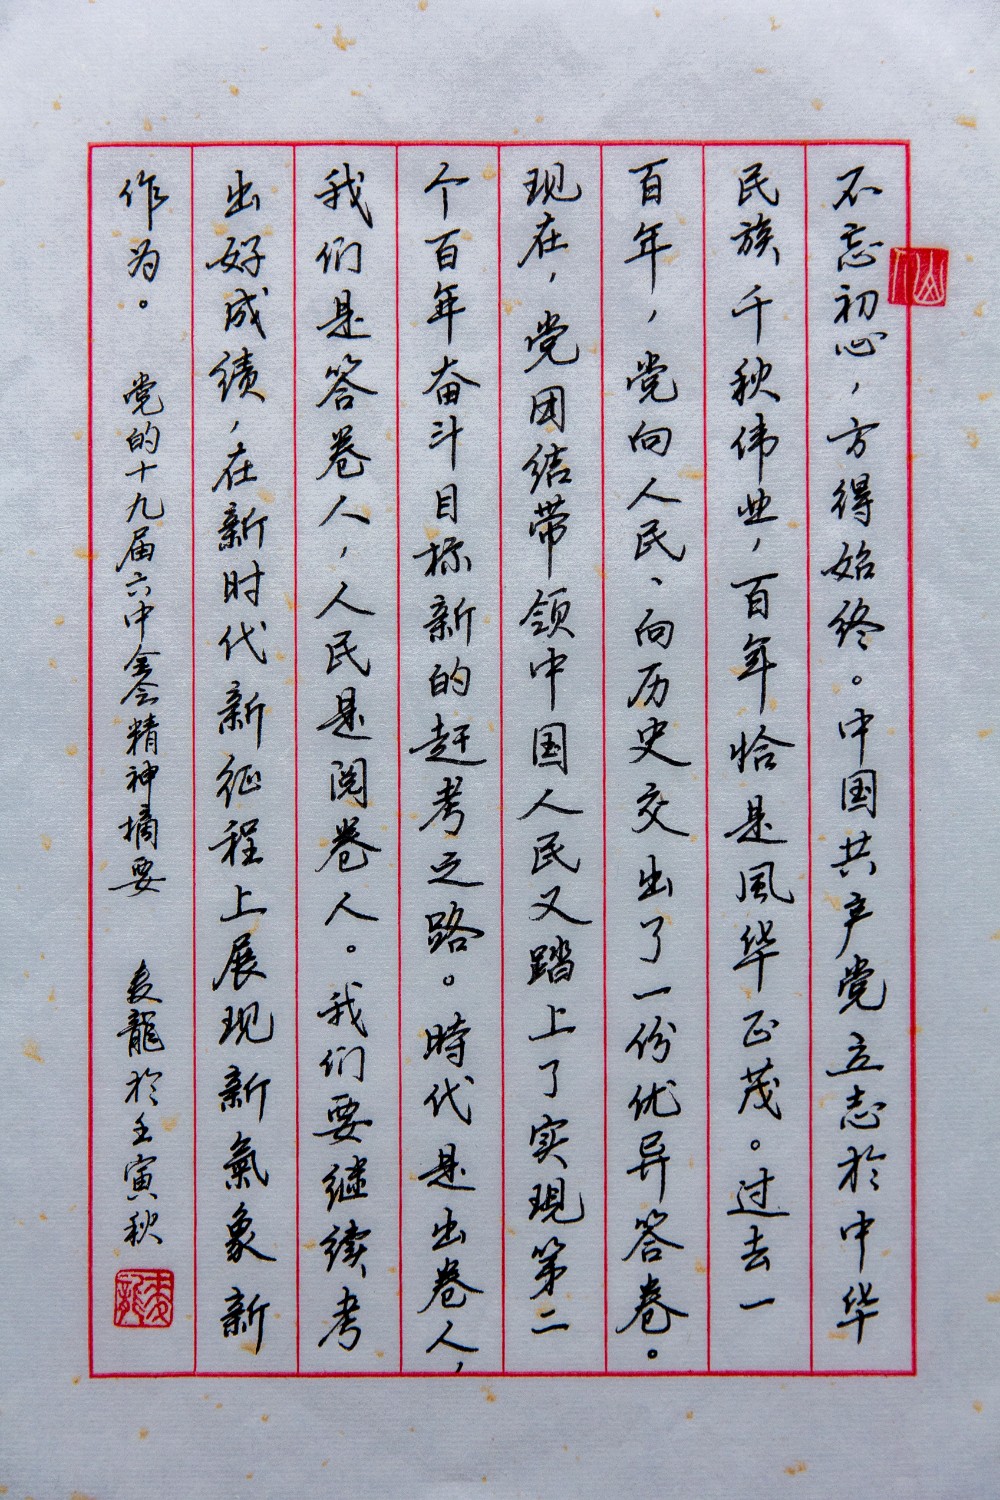 不忘初心，方得始终。中国共产党立志於中华
民族千秋伟业，百年恰是風华正茂。过去一
百年，党向人民、向历史交出了一份优异答卷。
现在，党团结带领中国人民又踏上了实現第二
个百年奋斗目标新的赶考之路。時代是出卷人，
我们是答卷人，人民是阅卷人。我们要继续考
出好成绩，在新时代新征程上展现新氣象新
作为。 党的十九届六中全会精神摘要 龍於壬寅秋